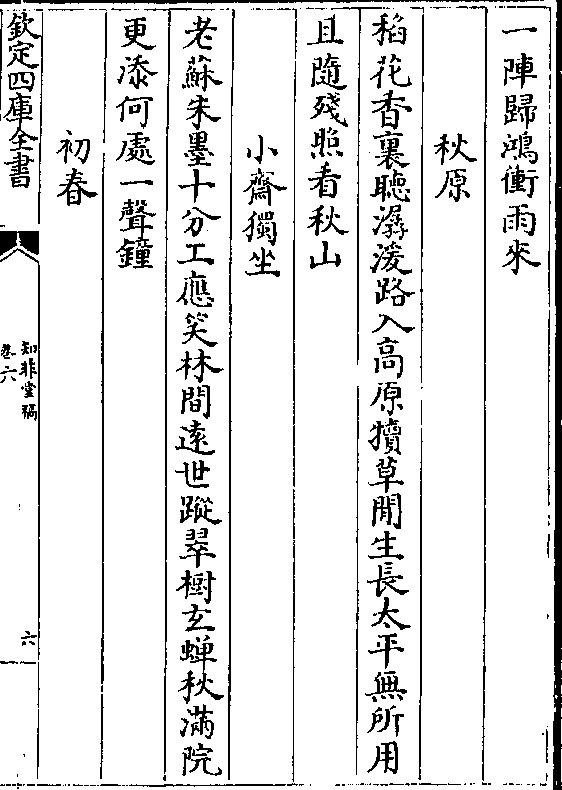 一陣歸鴻衝雨來
秋原
稻花香裏聽潺湲路入高原犢草閒生長太平無所用
且隨殘照看秋山
小齋獨坐
老蘇朱墨十分工應笑林間遠世蹤翠樹玄蟬秋滿院
更添何處一聲鐘
初春
欽定四庫全書
知非堂稿
卷六
六